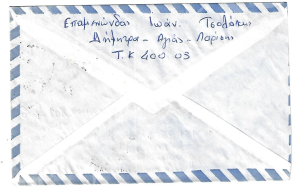 Επαμεινώνδας Ιωάν. Τσολάκης
Δήμητρα - Αγιάς - Λαρίσης
Τ.Κ 400 03